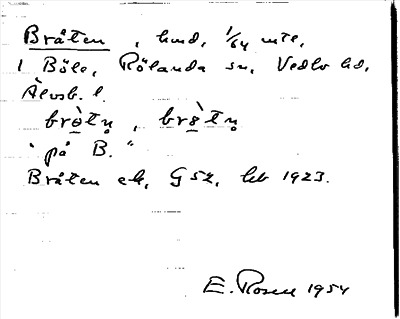 Bråten, hmd, 1/64 mtl,
i Böle, Rölanda sn, Vedbo hd,
Älvsb. l.
bròtn̥, bròtn̥
"på B."
Bråten ek, G 52, lvb 1923.
E. Rosell 1954